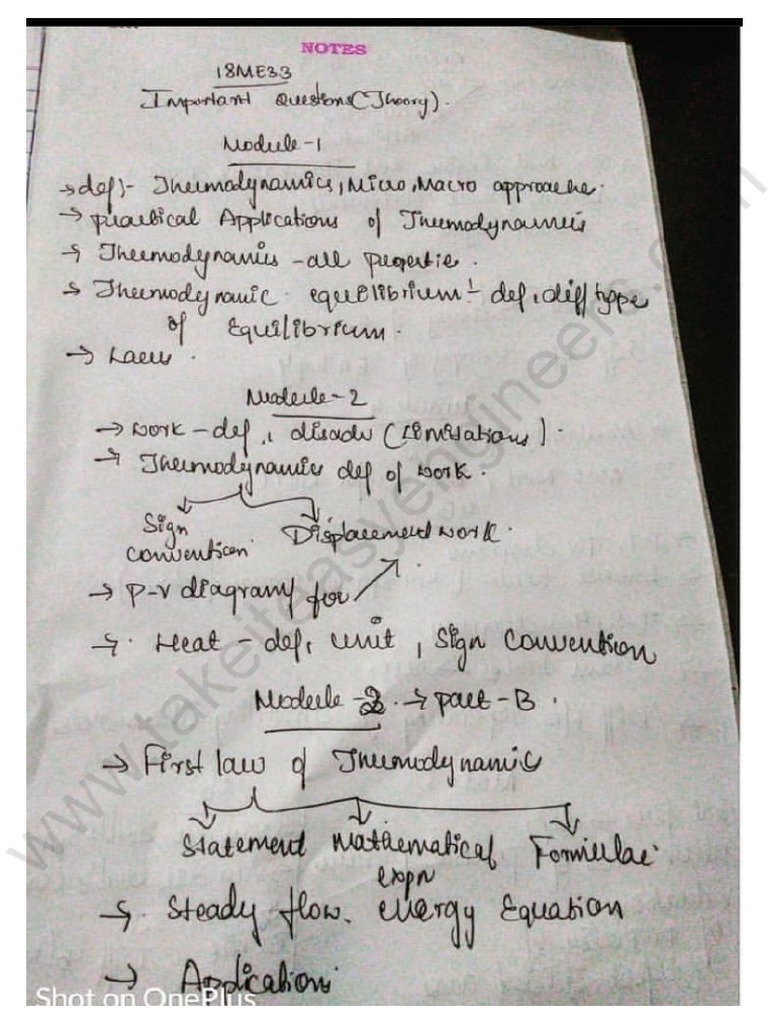 NOTES
18ME33
Important Questions (Theory).
Module-1
→ def:- Thermodynamics, Micro, Macro approache.
→ practical Applications of Thermodynamics
→ Thermodynamics - all propertie.
→ Thermodynamic equilibrium - def, diff type
of Equilibrium.
→ Laws.
Module-2
→ work - def, disadv (limitations).
→ Thermodynamics def of work.
Sign Displacement work.
convention
→ P-v diagram for
→ Heat - def, unit, Sign Convention
Module-2. → part-B.
→ First law of Thermodynamic
Statement Mathematical Formulae
expn
→ Steady flow energy Equation
→ Application
Shot on OnePlus
www.takeiteasyengineers.com